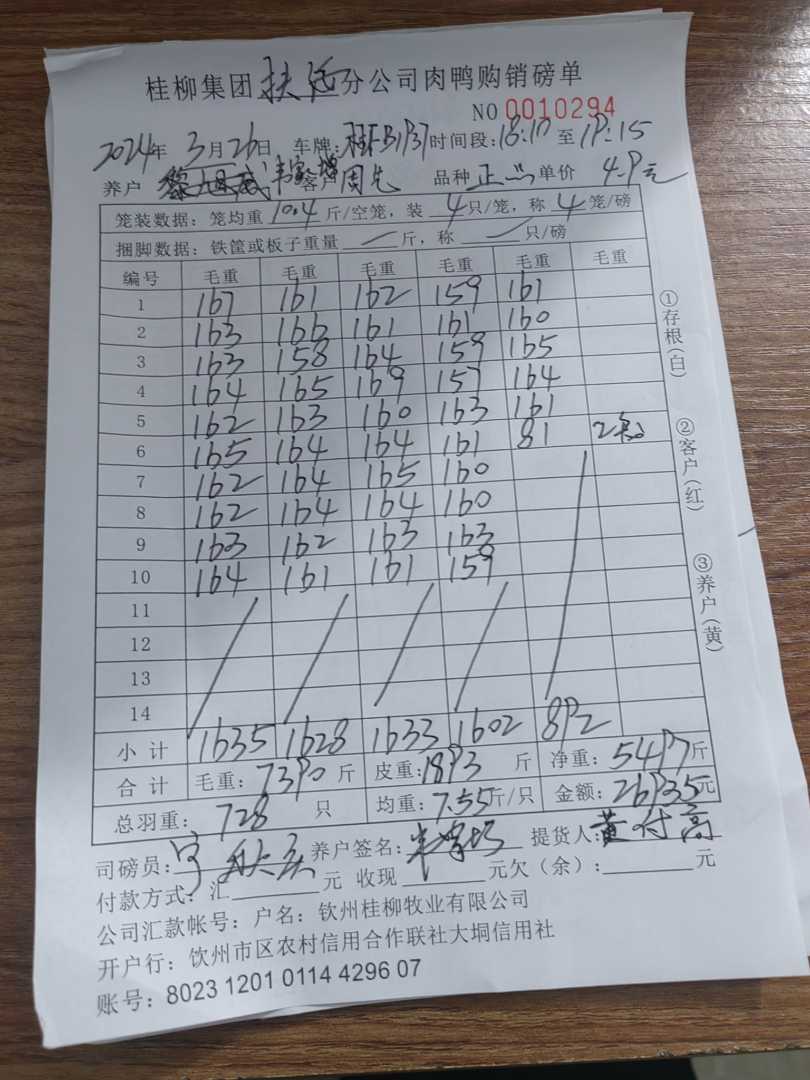 桂柳集团扶绥分公司肉鸭购销磅单
NO 0010294
2024年 3月26日 车牌: 时间段:18:10 至19:15
养户 客户周先 品种 正 单价 4.9元
笼装数据:笼均重 10.4 斤/空笼,装 4 只/笼,称 4 笼/磅
捆脚数据:铁筐或板子重量 / 斤,称 / 只/磅
编号 毛重 毛重 毛重 毛重 毛重 毛重
1 167 161 162 159 161
2 163 166 161 161 160
3 163 158 164 159 165
4 164 165 169 157 164
5 162 163 160 163 161
6 165 164 164 161 81 2
7 162 164 165 160
8 162 164 164 160
9 163 162 163 163
10 164 161 161 159
11
12
13
14
小计 1635 1628 1633 1602 892
合计 毛重:7390斤 皮重:1893斤 净重:5497斤
总羽重:728 只 均重:7.55斤/只 金额:26935元
司磅员: 养户签名: 提货人:黄付高
付款方式:汇 元 收现 元欠(余): 元
公司汇款帐号:户名:钦州桂柳牧业有限公司
开户行:饮州市区农村信用合作联社大垌信用社
账号:8023 1201 0114 4296 07
①存根(白)
②客户(红)
③养户(黄)